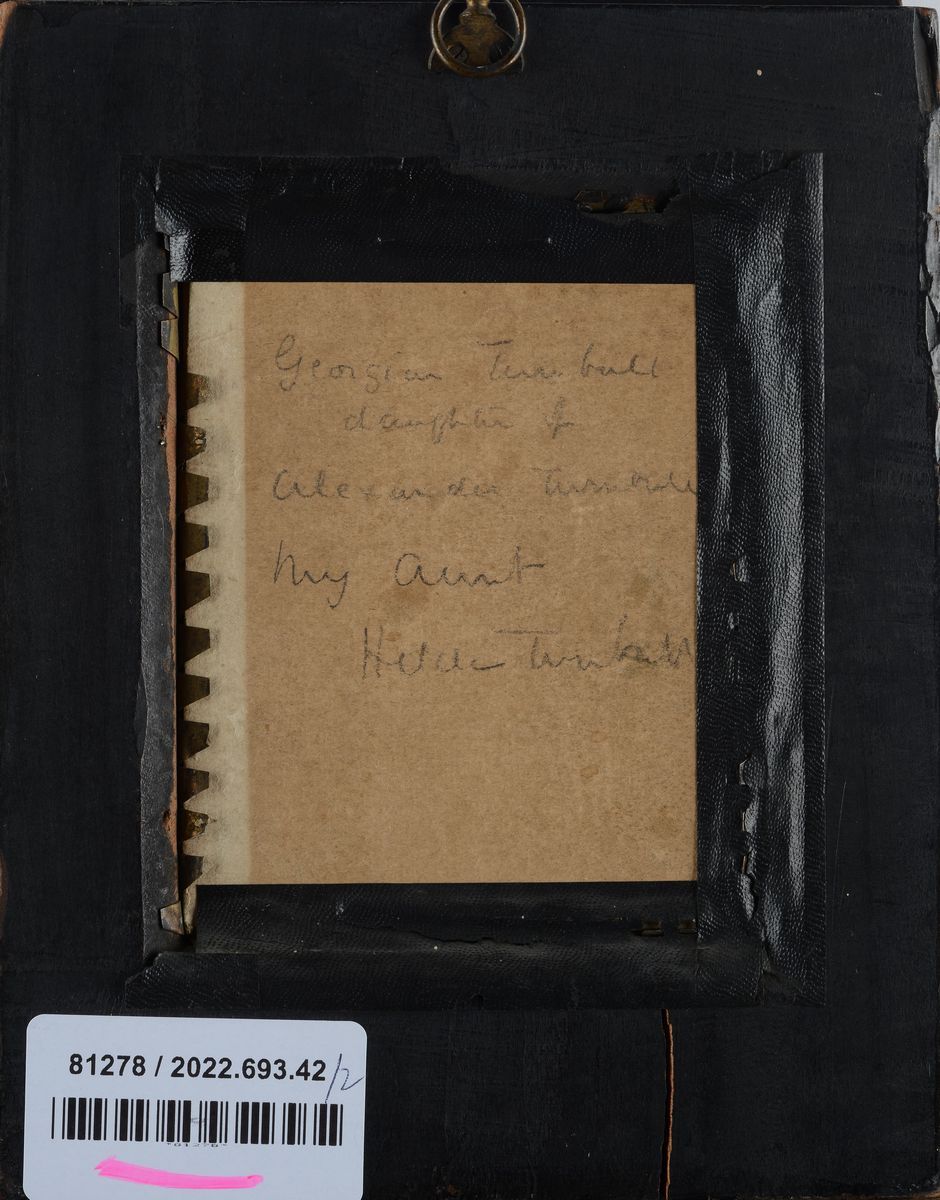 Georgian Turnbull
daughter of
Alexander Turnbull
My Aunt
Hilda Turnbull
81278 / 2022.693.42/2
*81278*